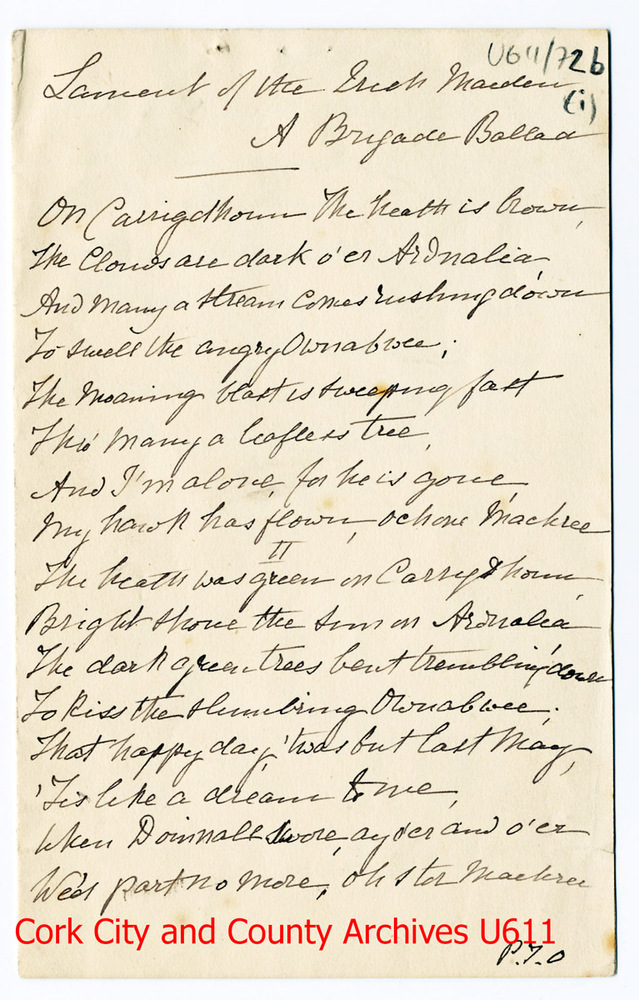 U611/72b
(i)
Lament of the Irish Maiden
A Brigade Ballad
On Carrigdhoun The heath is brown,
The Clouds are dark o'er Ardnalia
And many a stream comes rushing down
To swell the angry Ownabwee;
The moaning blast is sweeping fast
Thro' many a leafless tree,
And I'm alone, for he is gone,
My hawk has flown, ochone Machree
II
The heath was green on Carrigdhoun,
Bright shone the sun on Ardnalea
The dark green trees bent trembling down
To kiss the slumbring Ownabwee;
That happy day, 'twas but last May,
'Tis like a dream to me,
When Doinnall swore, ay o'er and o'er
We'd part no more, oh stor Machree
P.T.O
Cork City and County Archives U611